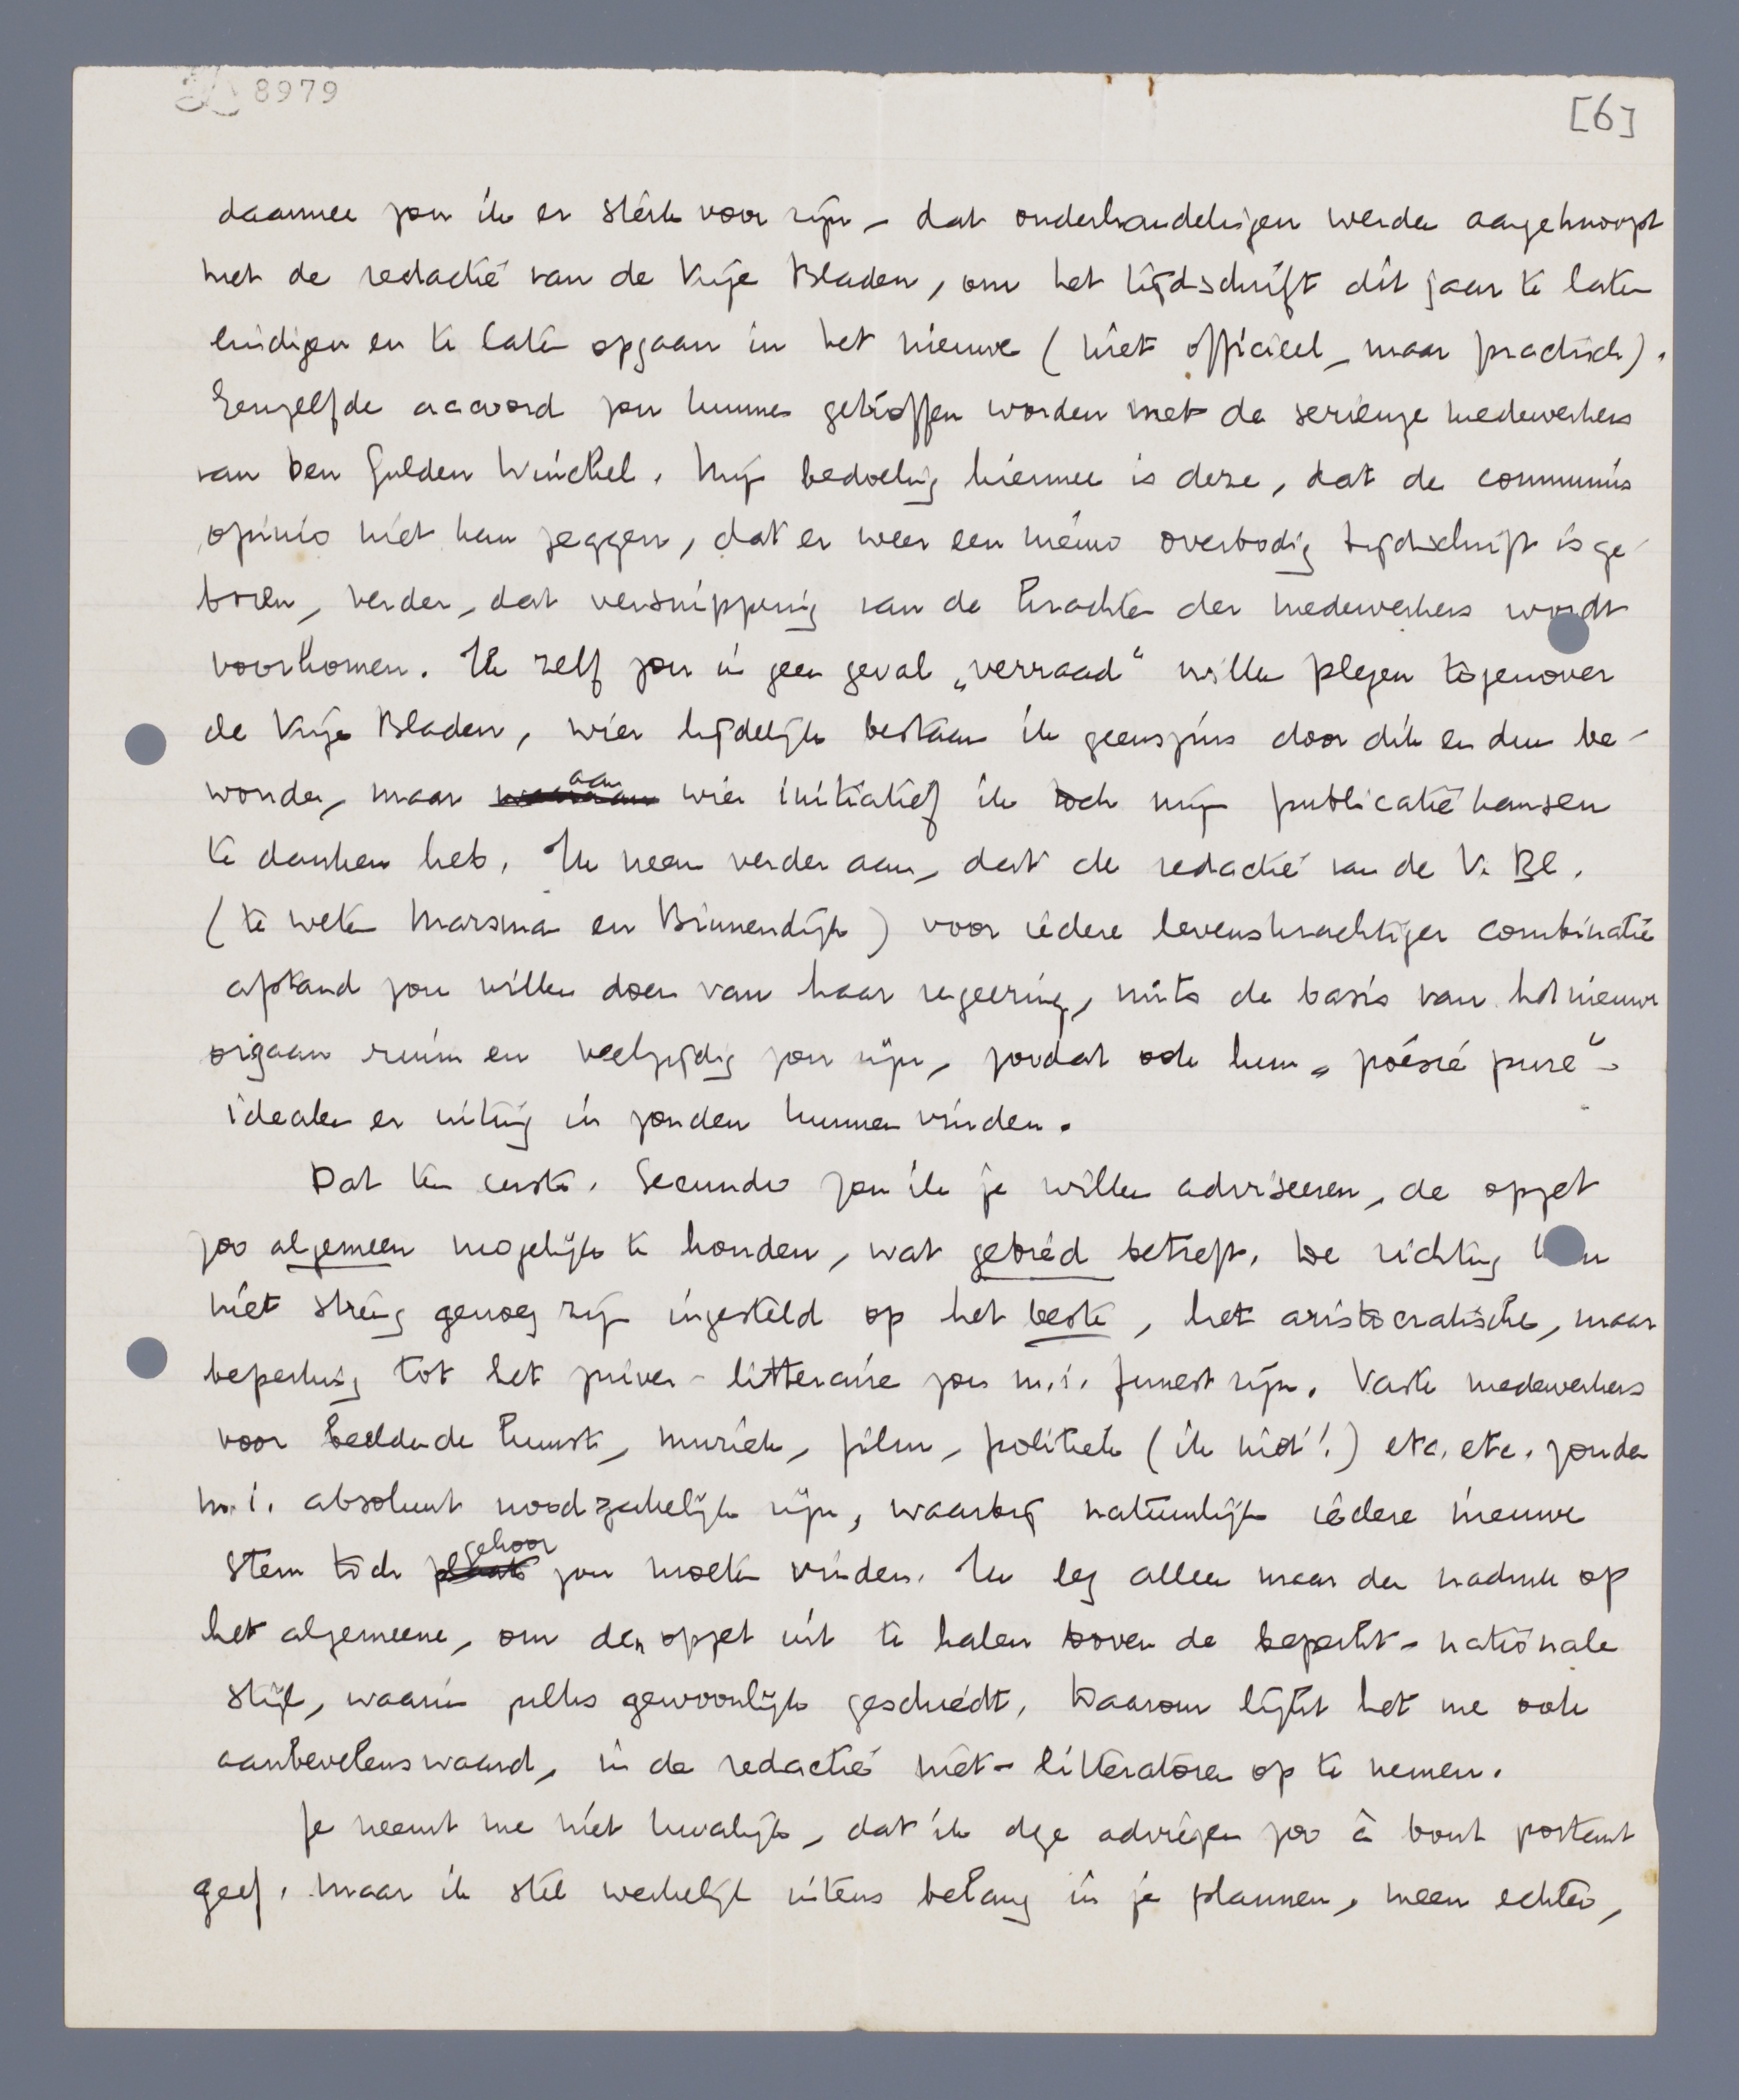 8979
[6]
daarmee zou ik er sterk voor zijn, dat onderhandelingen werden aangeknoopt
met de redactie van de Vrije Bladen, om het tijdschrift dit jaar te laten
eindigen en te laten opgaan in het nieuwe (niet officieel, maar practisch).
Eenzelfde accoord zou kunnen getroffen worden met de serieuze medewerkers
van Den Gulden Winckel. Mijn bedoeling hiermee is deze, dat de communis
opinio niet kan zeggen, dat er weer een nieuw overbodig tijdschrift is ge-
boren, verder, dat versnippering van de krachten der medewerkers wordt
voorkomen. Ik zelf zou in geen geval „verraad" willen plegen tegenover
de Vrije Bladen, wier tijdelijk bestaan ik geenszins door dik en dun be-
wonder, maar ~~waaraan~~ aan wier initiatief ik toch mijn publicatiekansen
te danken heb. Ik neem verder aan, dat de redactie van de V. Bl.
(te weten Marsman en Binnendijk) voor iedere levenskrachtiger combinatie
afstand zou willen doen van haar regeering, mits de basis van het nieuwe
orgaan ruim en veelzijdig zou zijn, zoodat ook hun „poésie pure"-
idealen er uiting in zouden kunnen vinden.
Dat ten eerste. Secundo zou ik je willen adviseeren, de opzet
zoo algemeen mogelijk te houden, wat gebied betreft. De richting kan
niet streng genoeg zijn ingesteld op het beste, het aristocratische, maar
beperking tot het zuiver-litteraire zou m.i. funest zijn. Vaste medewerkers
voor beeldende kunst, muziek, film, politiek (ik niet!) etc. etc. zouden
m.i. absoluut noodzakelijk zijn, waarbij natuurlijk iedere nieuwe
stem toch ~~plaats~~ gehoor zou moeten vinden. Ik leg alleen maar den nadruk op
het algemeene, om den opzet uit te halen boven de beperkt-nationale
stijl, waarin zulks gewoonlijk geschiedt. Daarom lijkt het me ook
aanbevelenswaard, in de redactie niet-litteratoren op te nemen.
Je neemt me niet kwalijk, dat ik deze adviezen zoo à bout portant
geef. Maar ik stel werkelijk intens belang in je plannen, meen echter,